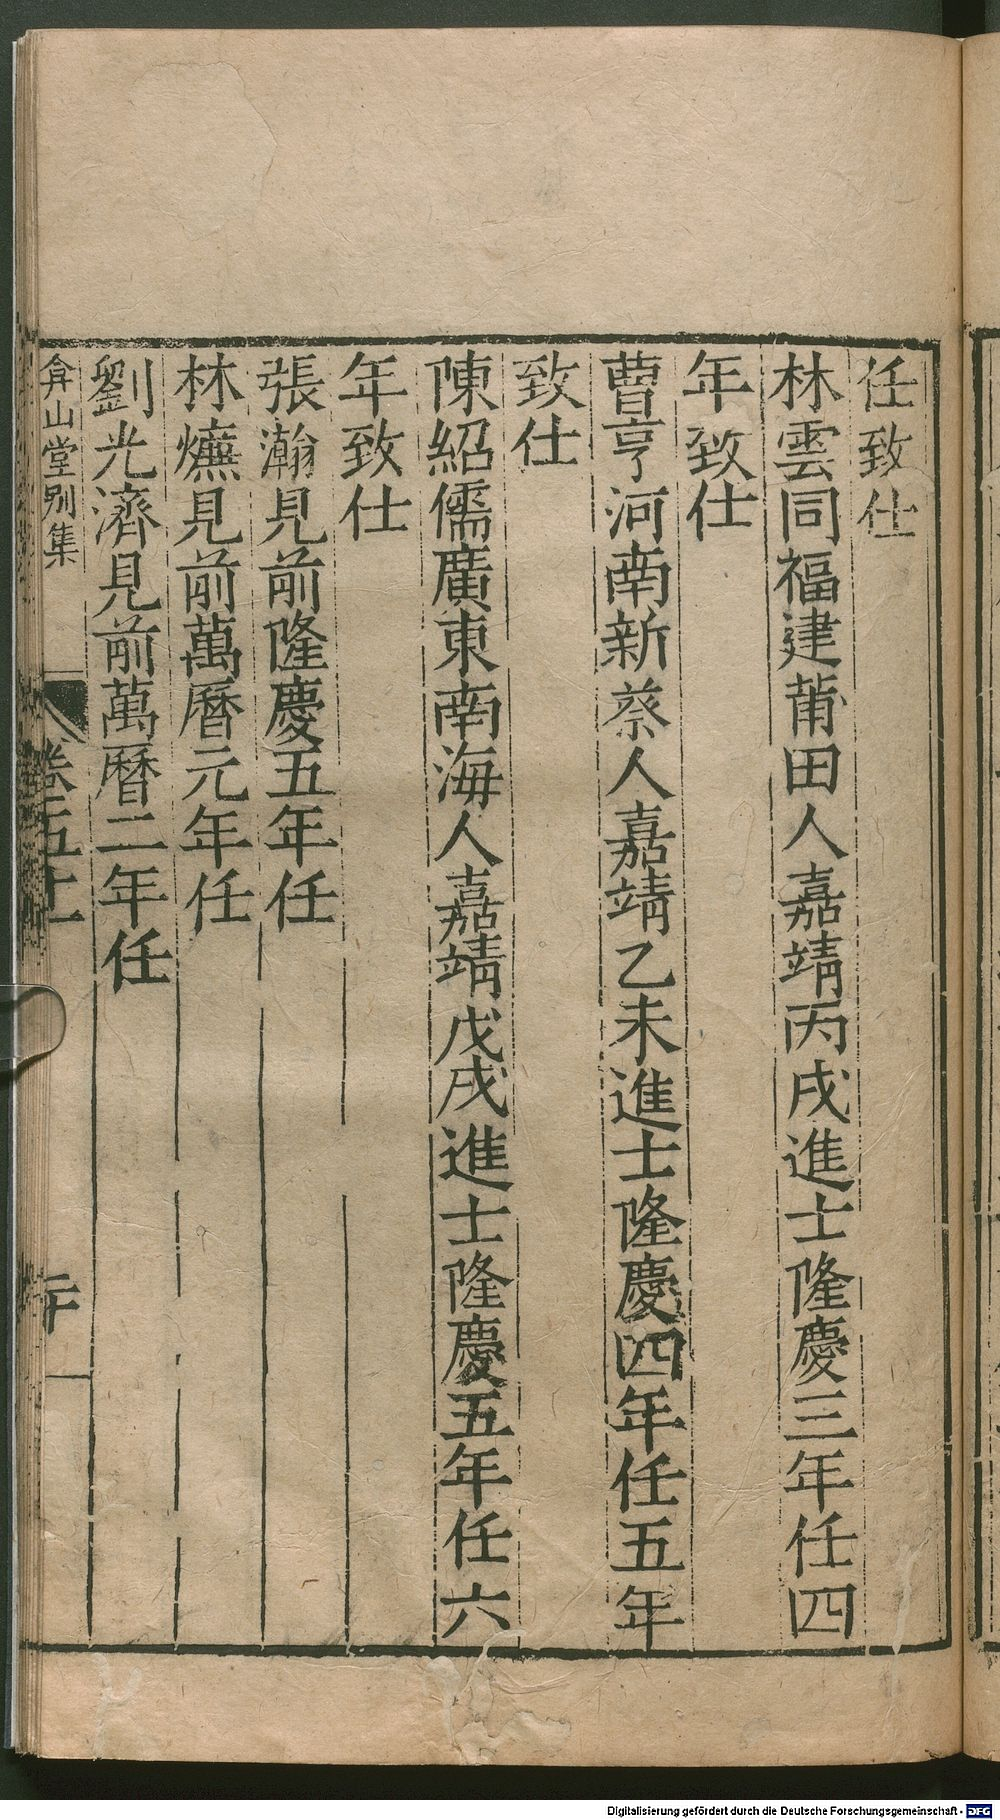 任致仕
林雲同福建莆田人嘉靖丙戌進士隆慶三年任四
年致仕
曹亨河南新蔡人嘉靖乙未進士隆慶四年任五年
致仕
陳紹儒廣東南海人嘉靖戊戌進士隆慶五年任六
年致仕
張瀚見前隆慶五年任
林燫見前萬曆元年任
劉光濟見前萬曆二年任
弇山堂別集
卷五十
二十
Digitalisierung gefördert durch die Deutsche Forschungsgemeinschaft - DFG